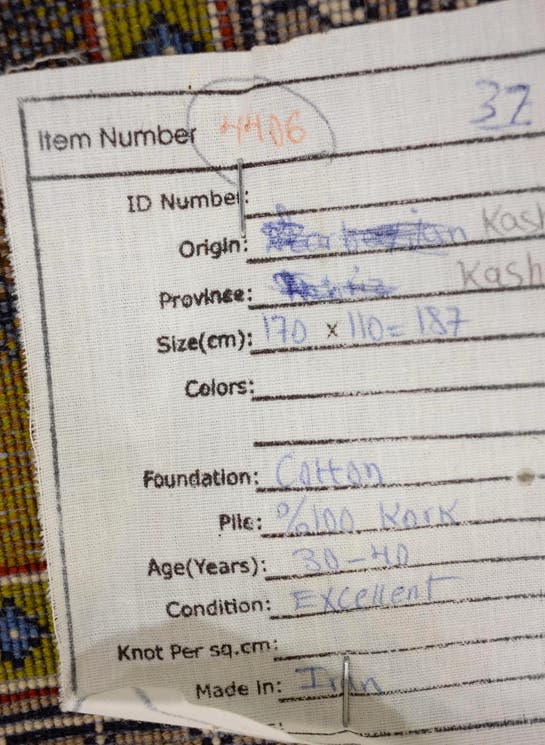 Item Number 4406 37
ID Number:
Origin: Kash
Province: Kash
Size(cm): 170 x 110= 187
Colors:
Foundation: Cotton
Pile: %100 Kork
Age(Years): 30-40
Condition: Excellent
Knot Per sq.cm:
Made in: Iran